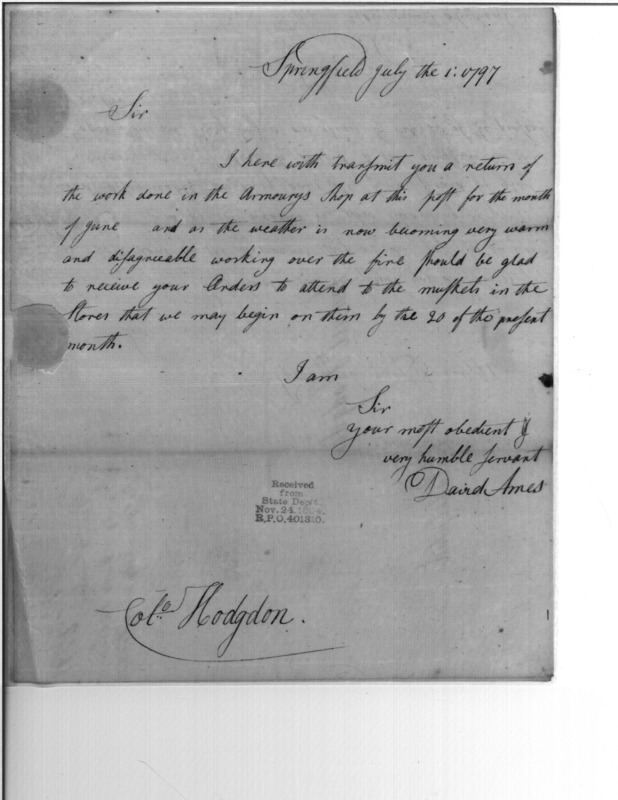 Springfield July the 1: 1797
Sir
I here with transmit you a return of
the work done in the Armourys Shop at this post for the month
of June and as the weather is now becoming very warm
and disagreeable working over the fire should be glad
to receive your Orders to attend to the muskets in the
Stores that we may begin on them by the 20 of the present
month.
I am
Sir
your most obedient &
very humble servant
David Ames
Received
from
State Dept.
Nov. 24.
R.P.O. 401310.
Colo. Hodgdon.